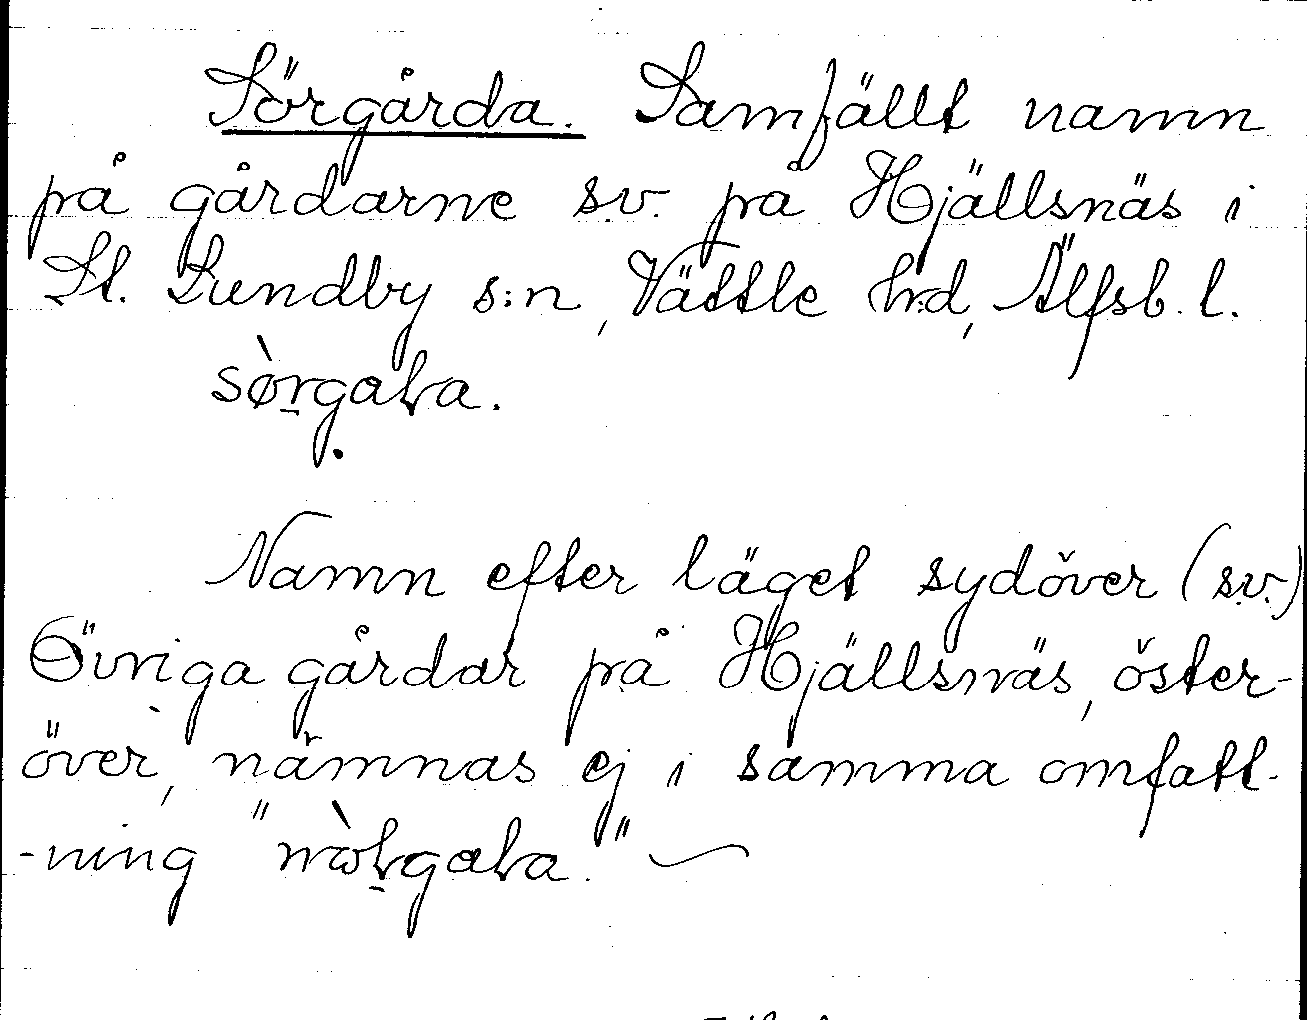 Sörgårda. Samfällt namn
på gårdarne s.v. på Hjällsnäs i
St. Lundby s:n, Vättle h:d, Älfsb. l.
sørgaɽa.
Namn efter läget sydöver (s.v.)
Övriga gårdar på Hjällsnäs, öster-
över, nämnas ej i samma omfatt-
-ning "nɷɽgaɽa."